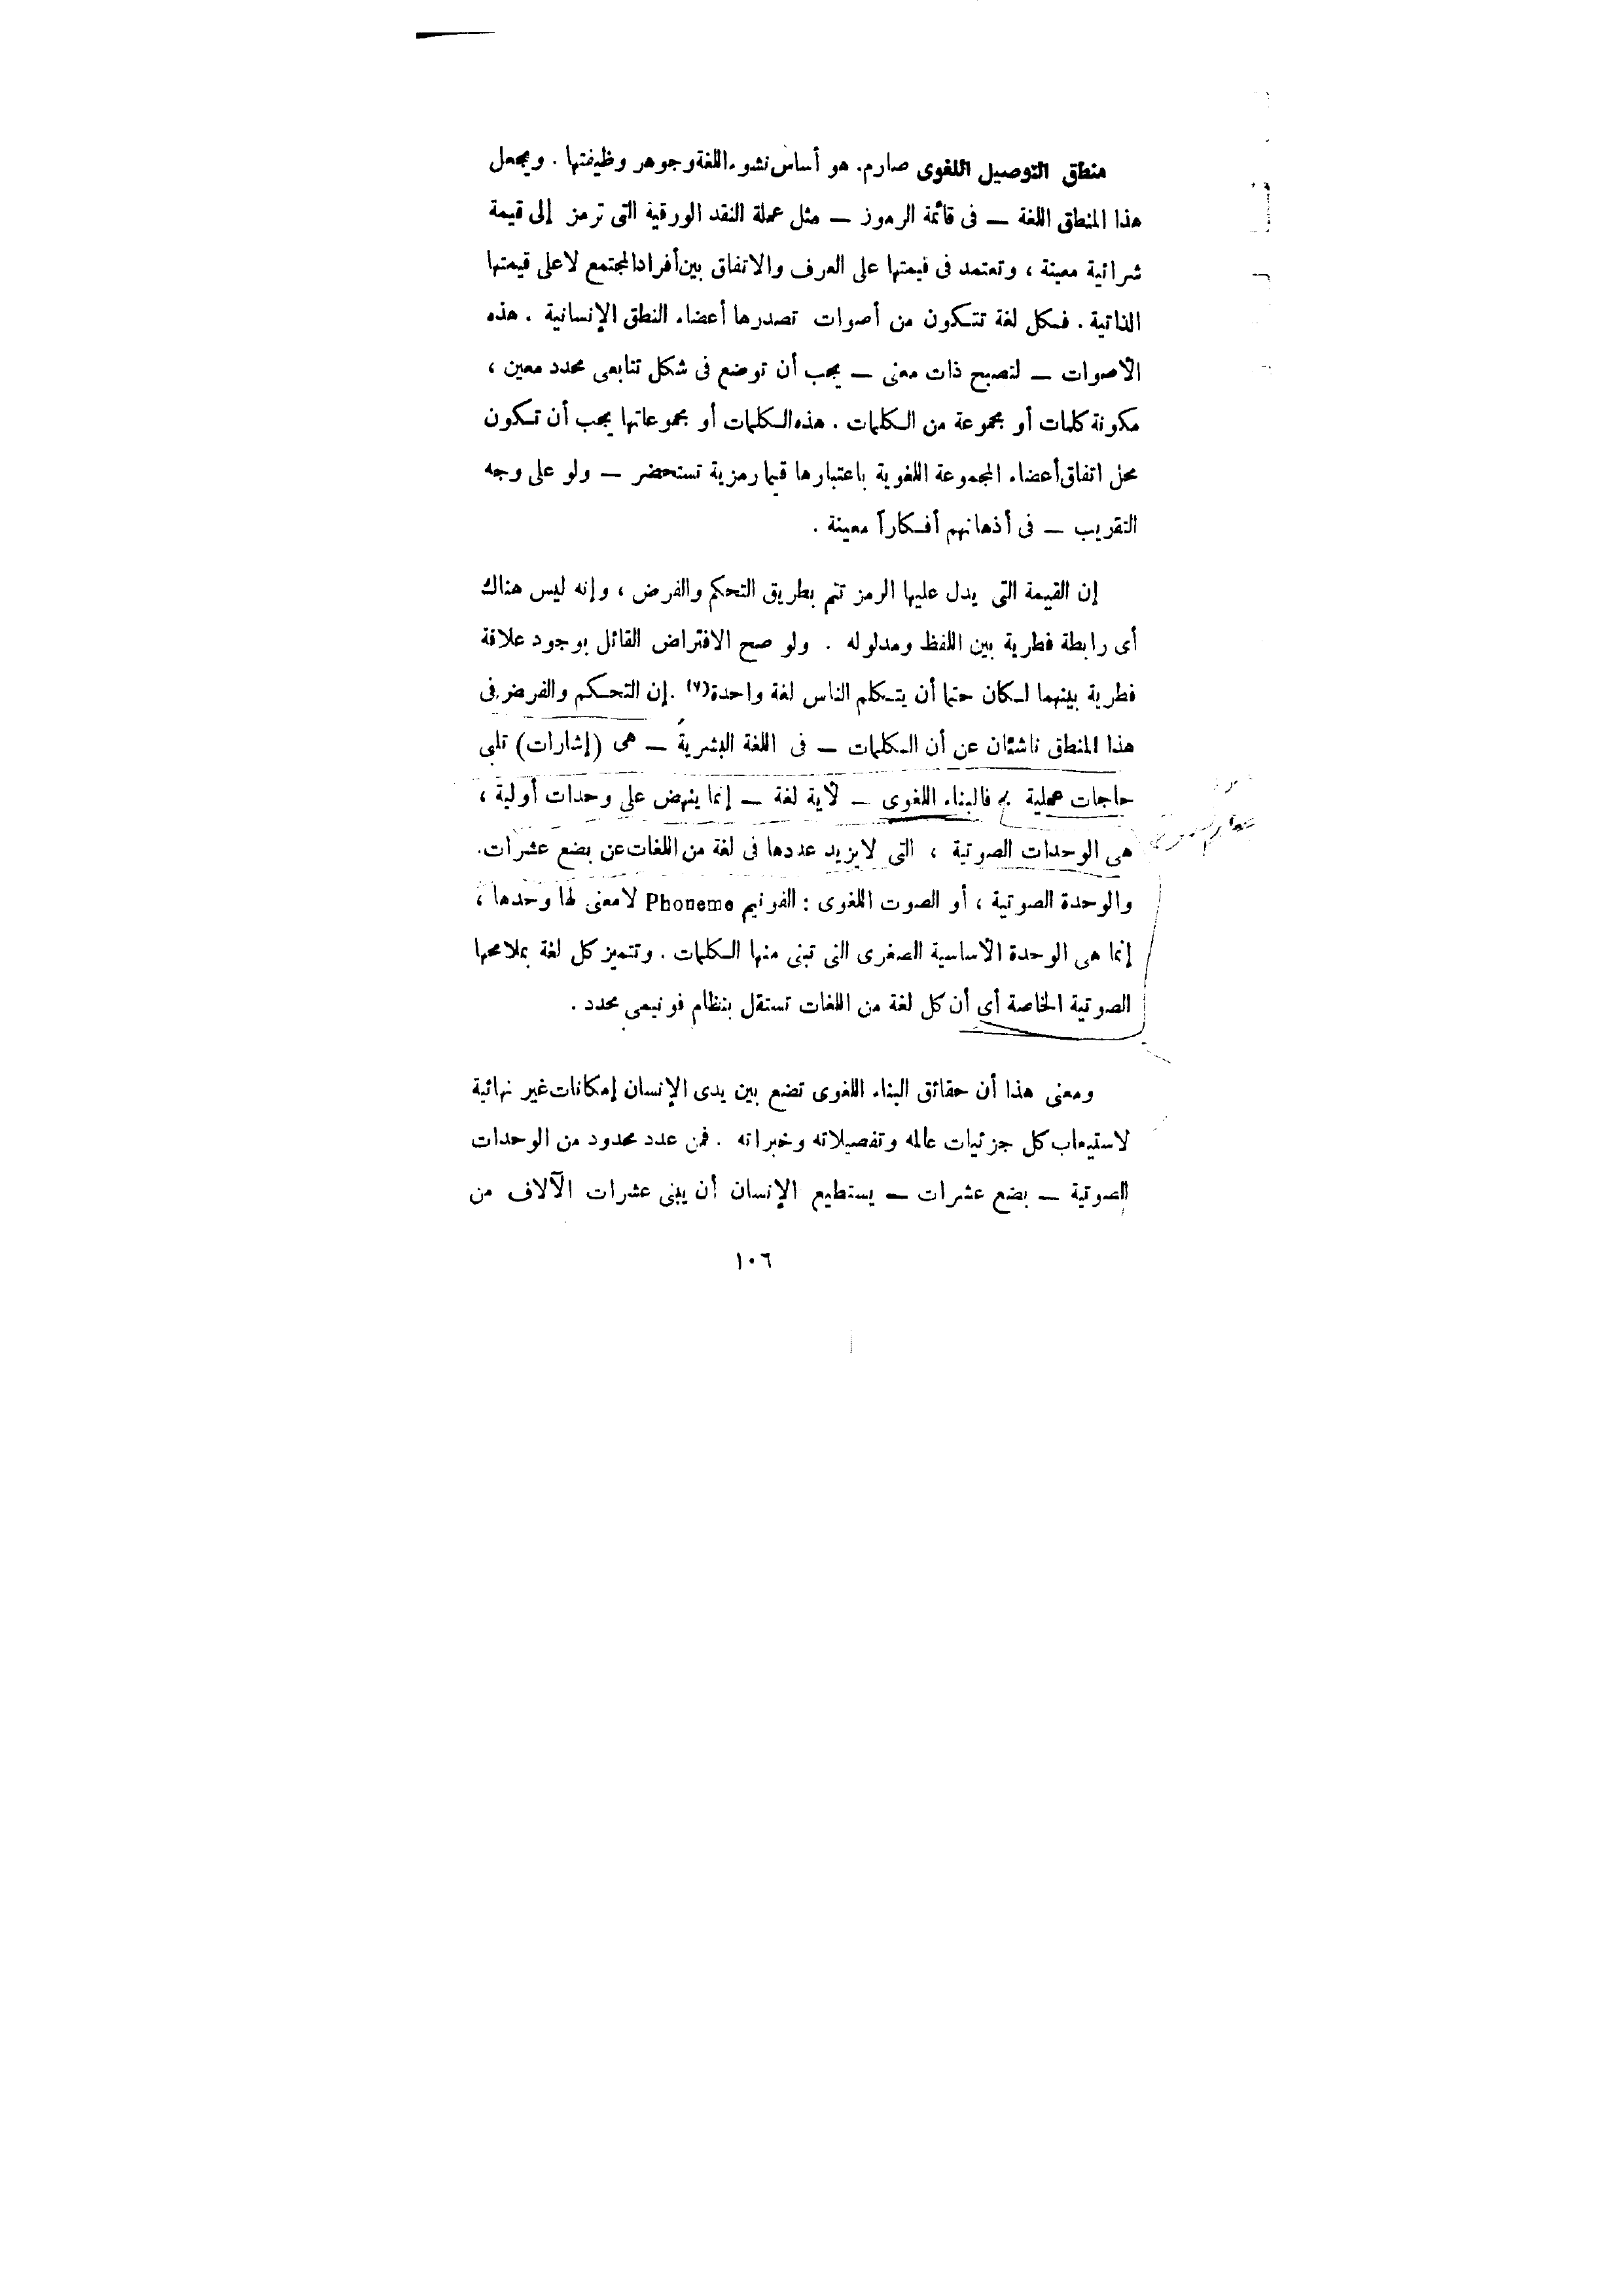 منطق التوصيل اللغوى صارم. هو أساس نشوء اللغة وجوهر وظيفتها . ويجعل
هذا المنطق اللغة — فى قائمة الرموز — مثل عملة النقد الورقية التى ترمز إلى قيمة
شرائية معينة ، وتعتمد فى قيمتها على العرف والاتفاق بين أفراد المجتمع لا على قيمتها
الذاتية . فكل لغة تتكون من أصوات تصدرها أعضاء النطق الإنسانية . هذه
الأصوات — لتصبح ذات معنى — يجب أن توضع فى شكل تتابعى محدد معين ،
مكونة كلمات أو مجموعة من الكلمات . هذه الكلمات أو مجموعاتها يجب أن تكون
محل اتفاق أعضاء المجموعة اللغوية باعتبارها قيما رمزية تستحضر — ولو على وجه
التقريب — فى أذهانهم أفكاراً معينة .
إن القيمة التى يدل عليها الرمز تتم بطريق التحكم والفرض ، وإنه ليس هناك
أى رابطة فطرية بين اللفظ ومدلوله . ولو صح الافتراض القائل بوجود علاقة
فطرية بينهما لكان حتما أن يتكلم الناس لغة واحدة(٧) . إن التحكم والفرض فى
هذا المنطق ناشئان عن أن الكلمات — فى اللغة البشرية — هى (إشارات) تلبى
حاجات عملية فالبناء اللغوى — لأية لغة — إنما ينهض على وحدات أولية ،
هى الوحدات الصوتية ، التى لا يزيد عددها فى لغة من اللغات عن بضع عشرات.
والوحدة الصوتية ، أو الصوت اللغوى : الفونيم Phoneme لا معنى لها وحدها ،
إنما هى الوحدة الأساسية الصغرى التى تبنى منها الكلمات . وتتميز كل لغة بملامحها
الصوتية الخاصة أى أن كل لغة من اللغات تستقل بنظام فونيمى محدد .
ومعنى هذا أن حقائق البناء اللغوى تضع بين يدى الإنسان إمكانات غير نهائية
لاستيعاب كل جزئيات عالمه وتفصيلاته وخبراته . فمن عدد محدود من الوحدات
الصوتية — بضع عشرات — يستطيع الإنسان أن يبنى عشرات الآلاف من
١٠٦